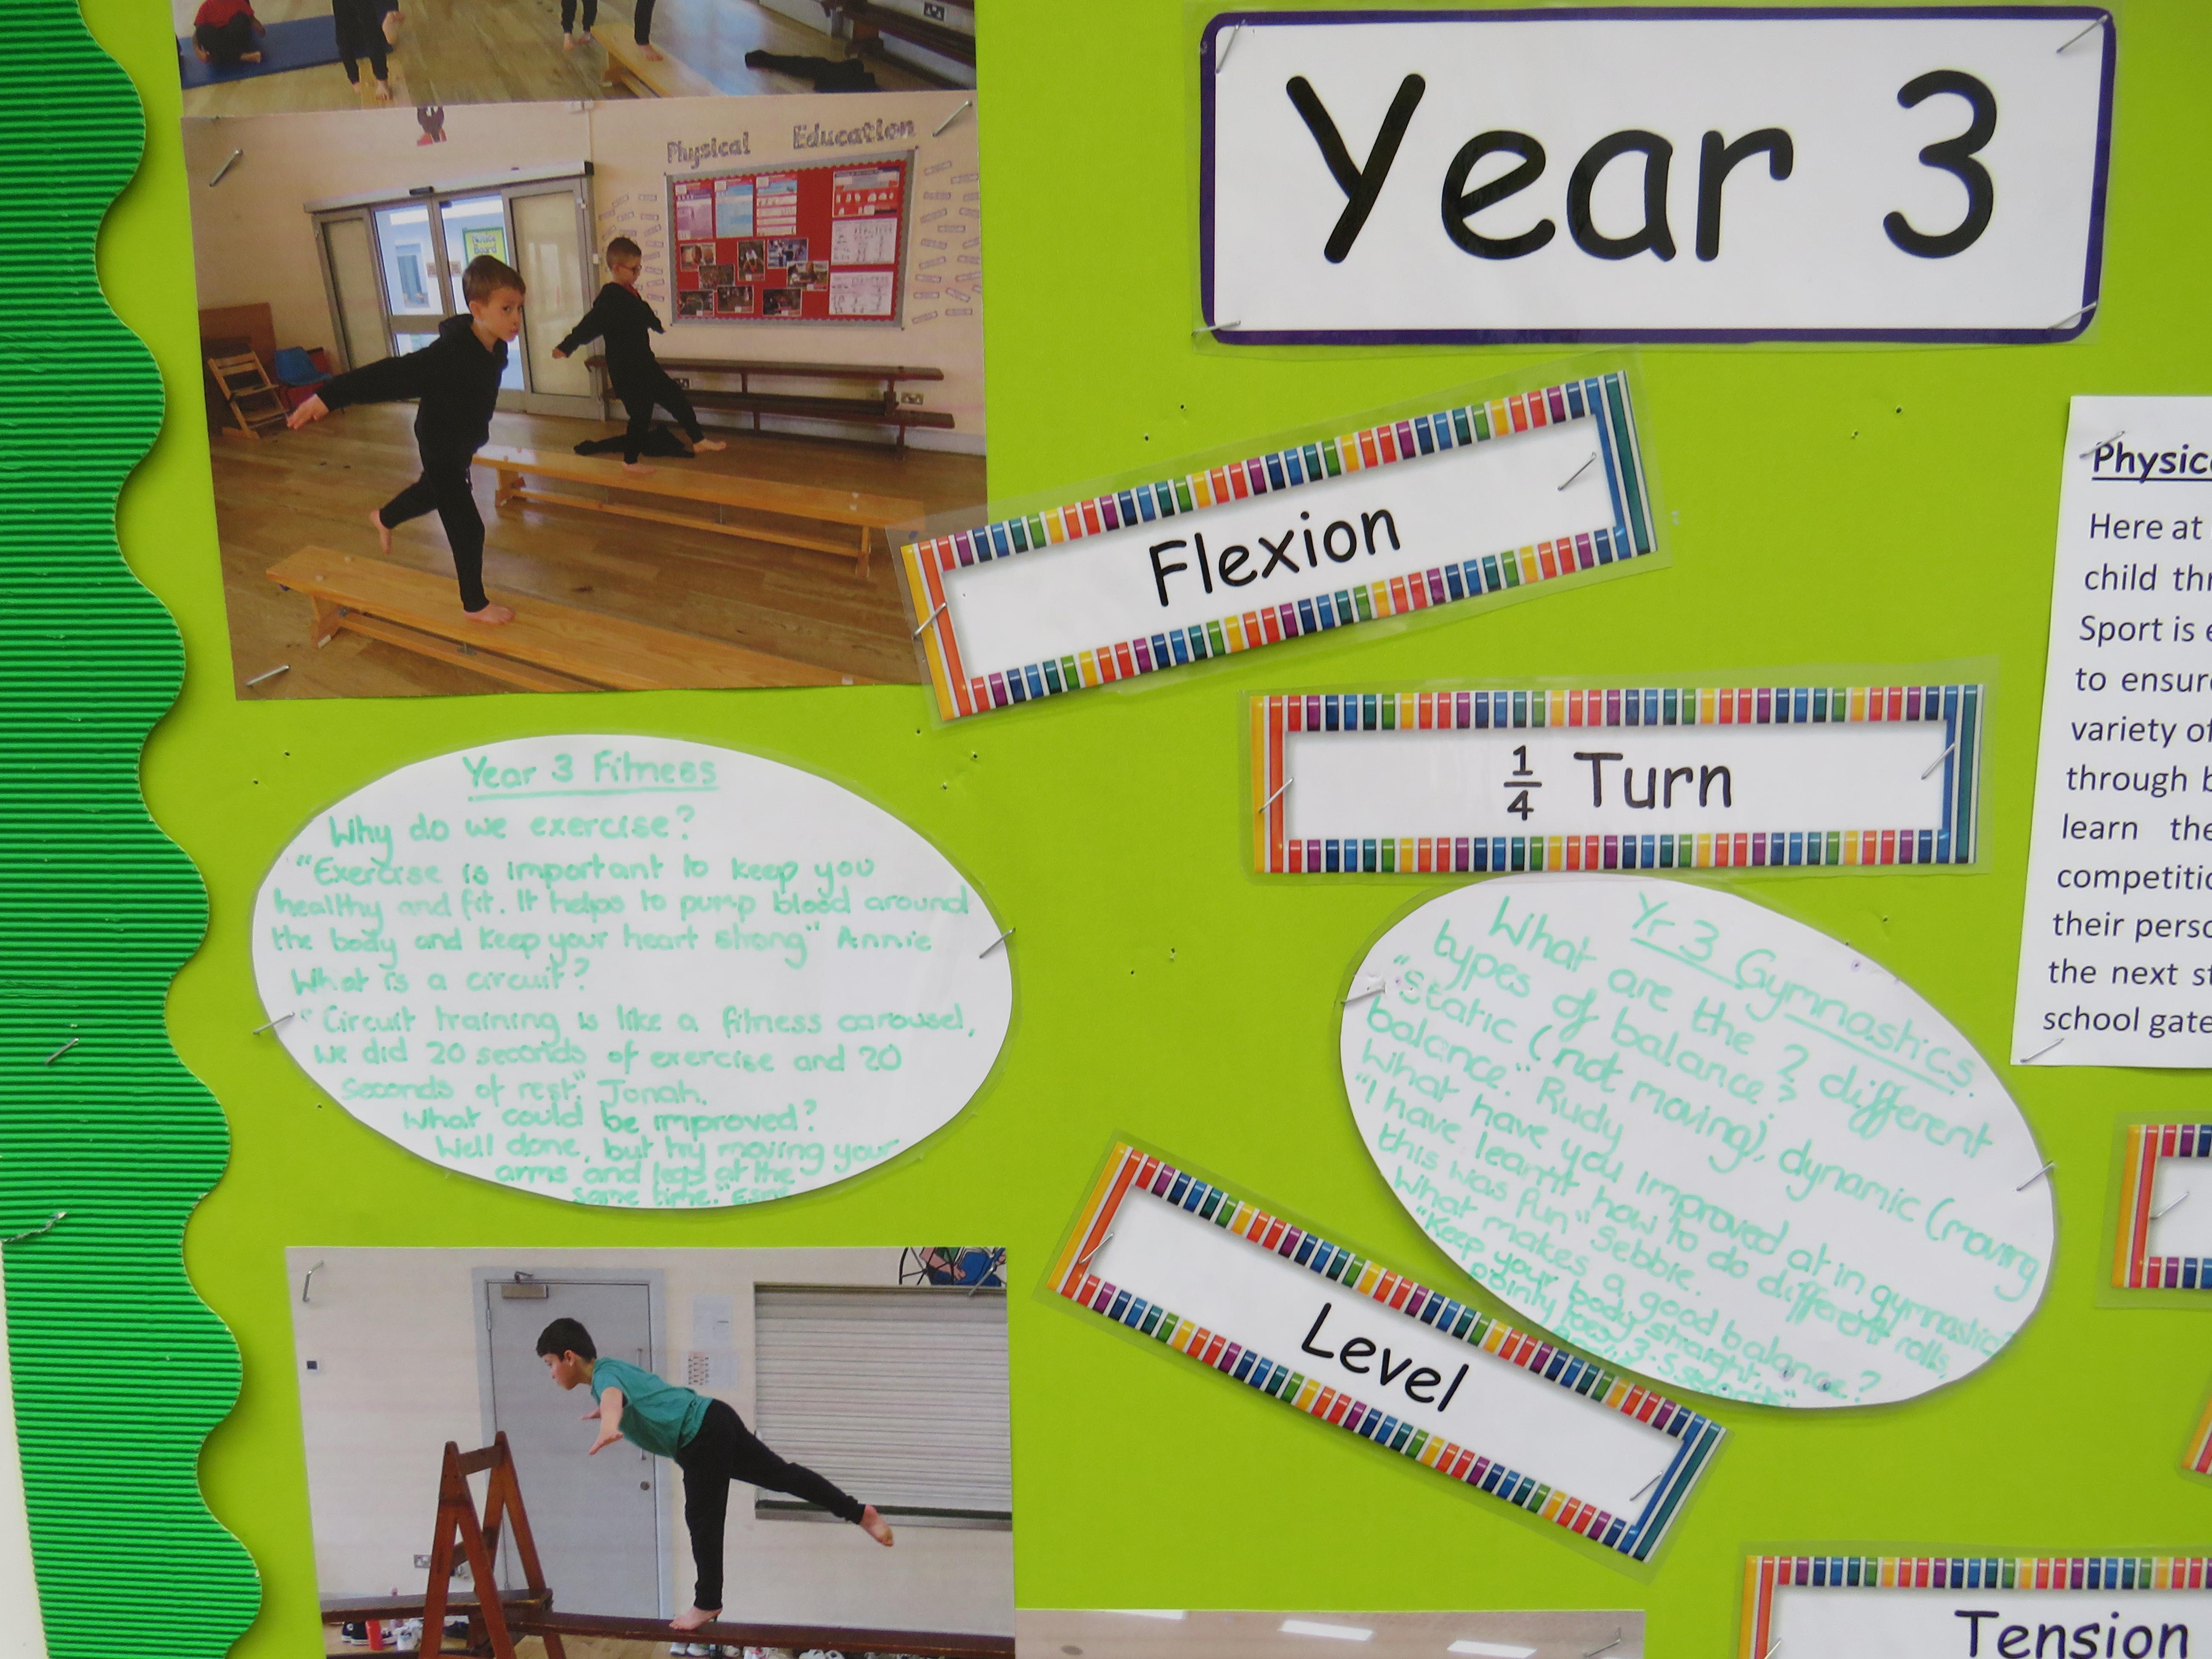 Physical Education
Year 3
Flexion
1/4 Turn
Year 3 Fitness
Why do we exercise?
"Exercise is important to keep you
healthy and fit. It helps to pump blood around
the body and keep your heart strong" Annie
What is a circuit?
"Circuit training is like a fitness carousel,
we did 20 seconds of exercise and 20
seconds of rest." Jonah.
What could be improved?
Well done, but try moving your
arms and legs at the
same time."
Yr 3 Gymnastics
What are the 2 different
types of balance?
"Static (not moving), dynamic (moving
balance." Rudy
What have you improved at in gymnastics
"I have learnt how to do different rolls,
this was fun" Sebbie.
What makes a good balance?
"Keep your body straight,
pointy toes, 3-5 seconds"
Level
Tension
Physic
Here at
child thr
Sport is e
to ensur
variety of
through b
learn the
competitio
their perso
the next st
school gate